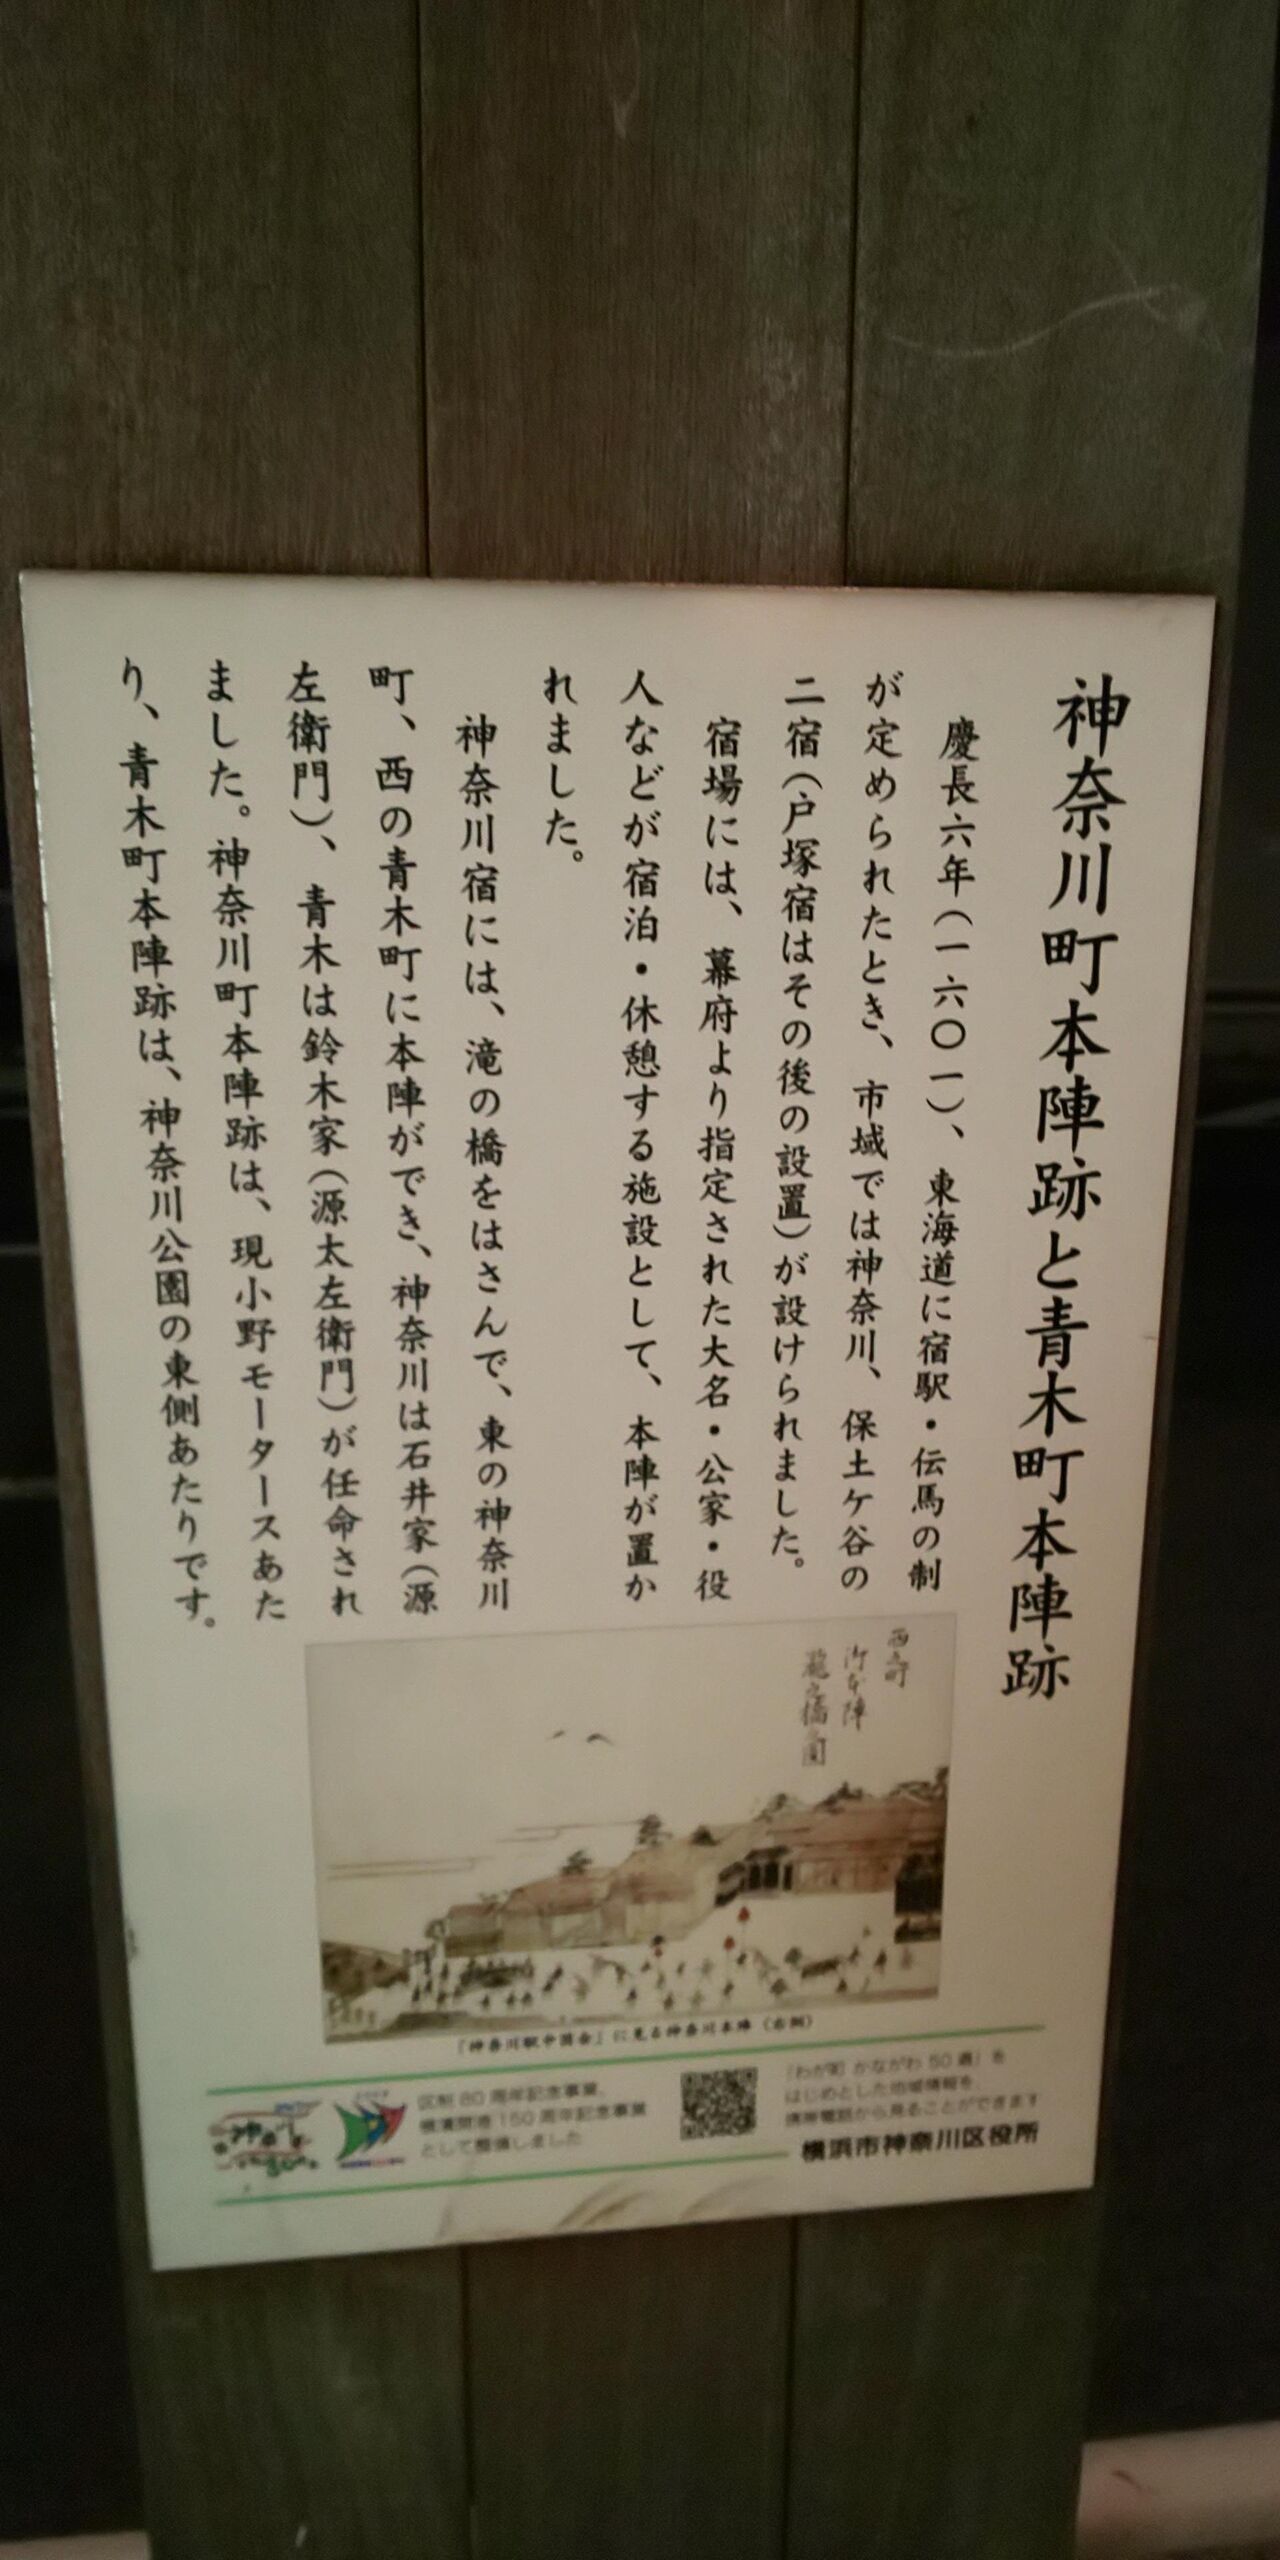 神奈川町本陣跡と青木町本陣跡
慶長六年（一六〇一）、東海道に宿駅・伝馬の制
が定められたとき、市域では神奈川、保土ケ谷の
二宿（戸塚宿はその後の設置）が設けられました。
宿場には、幕府より指定された大名・公家・役
人などが宿泊・休憩する施設として、本陣が置か
れました。
神奈川宿には、滝の橋をはさんで、東の神奈川
町、西の青木町に本陣ができ、神奈川は石井家（源
左衛門）、青木は鈴木家（源太左衛門）が任命され
ました。神奈川町本陣跡は、現小野モータースあた
り、青木町本陣跡は、神奈川公園の東側あたりです。
西之町
御本陣
瀧之橋之図
「神奈川駅中図会」に見る神奈川本陣（右側）
区制80周年記念事業、
横濱開港150周年記念事業
として整備しました
「わが町 かながわ 50選」を
はじめとした地域情報を、
携帯電話から見ることができます
横浜市神奈川区役所